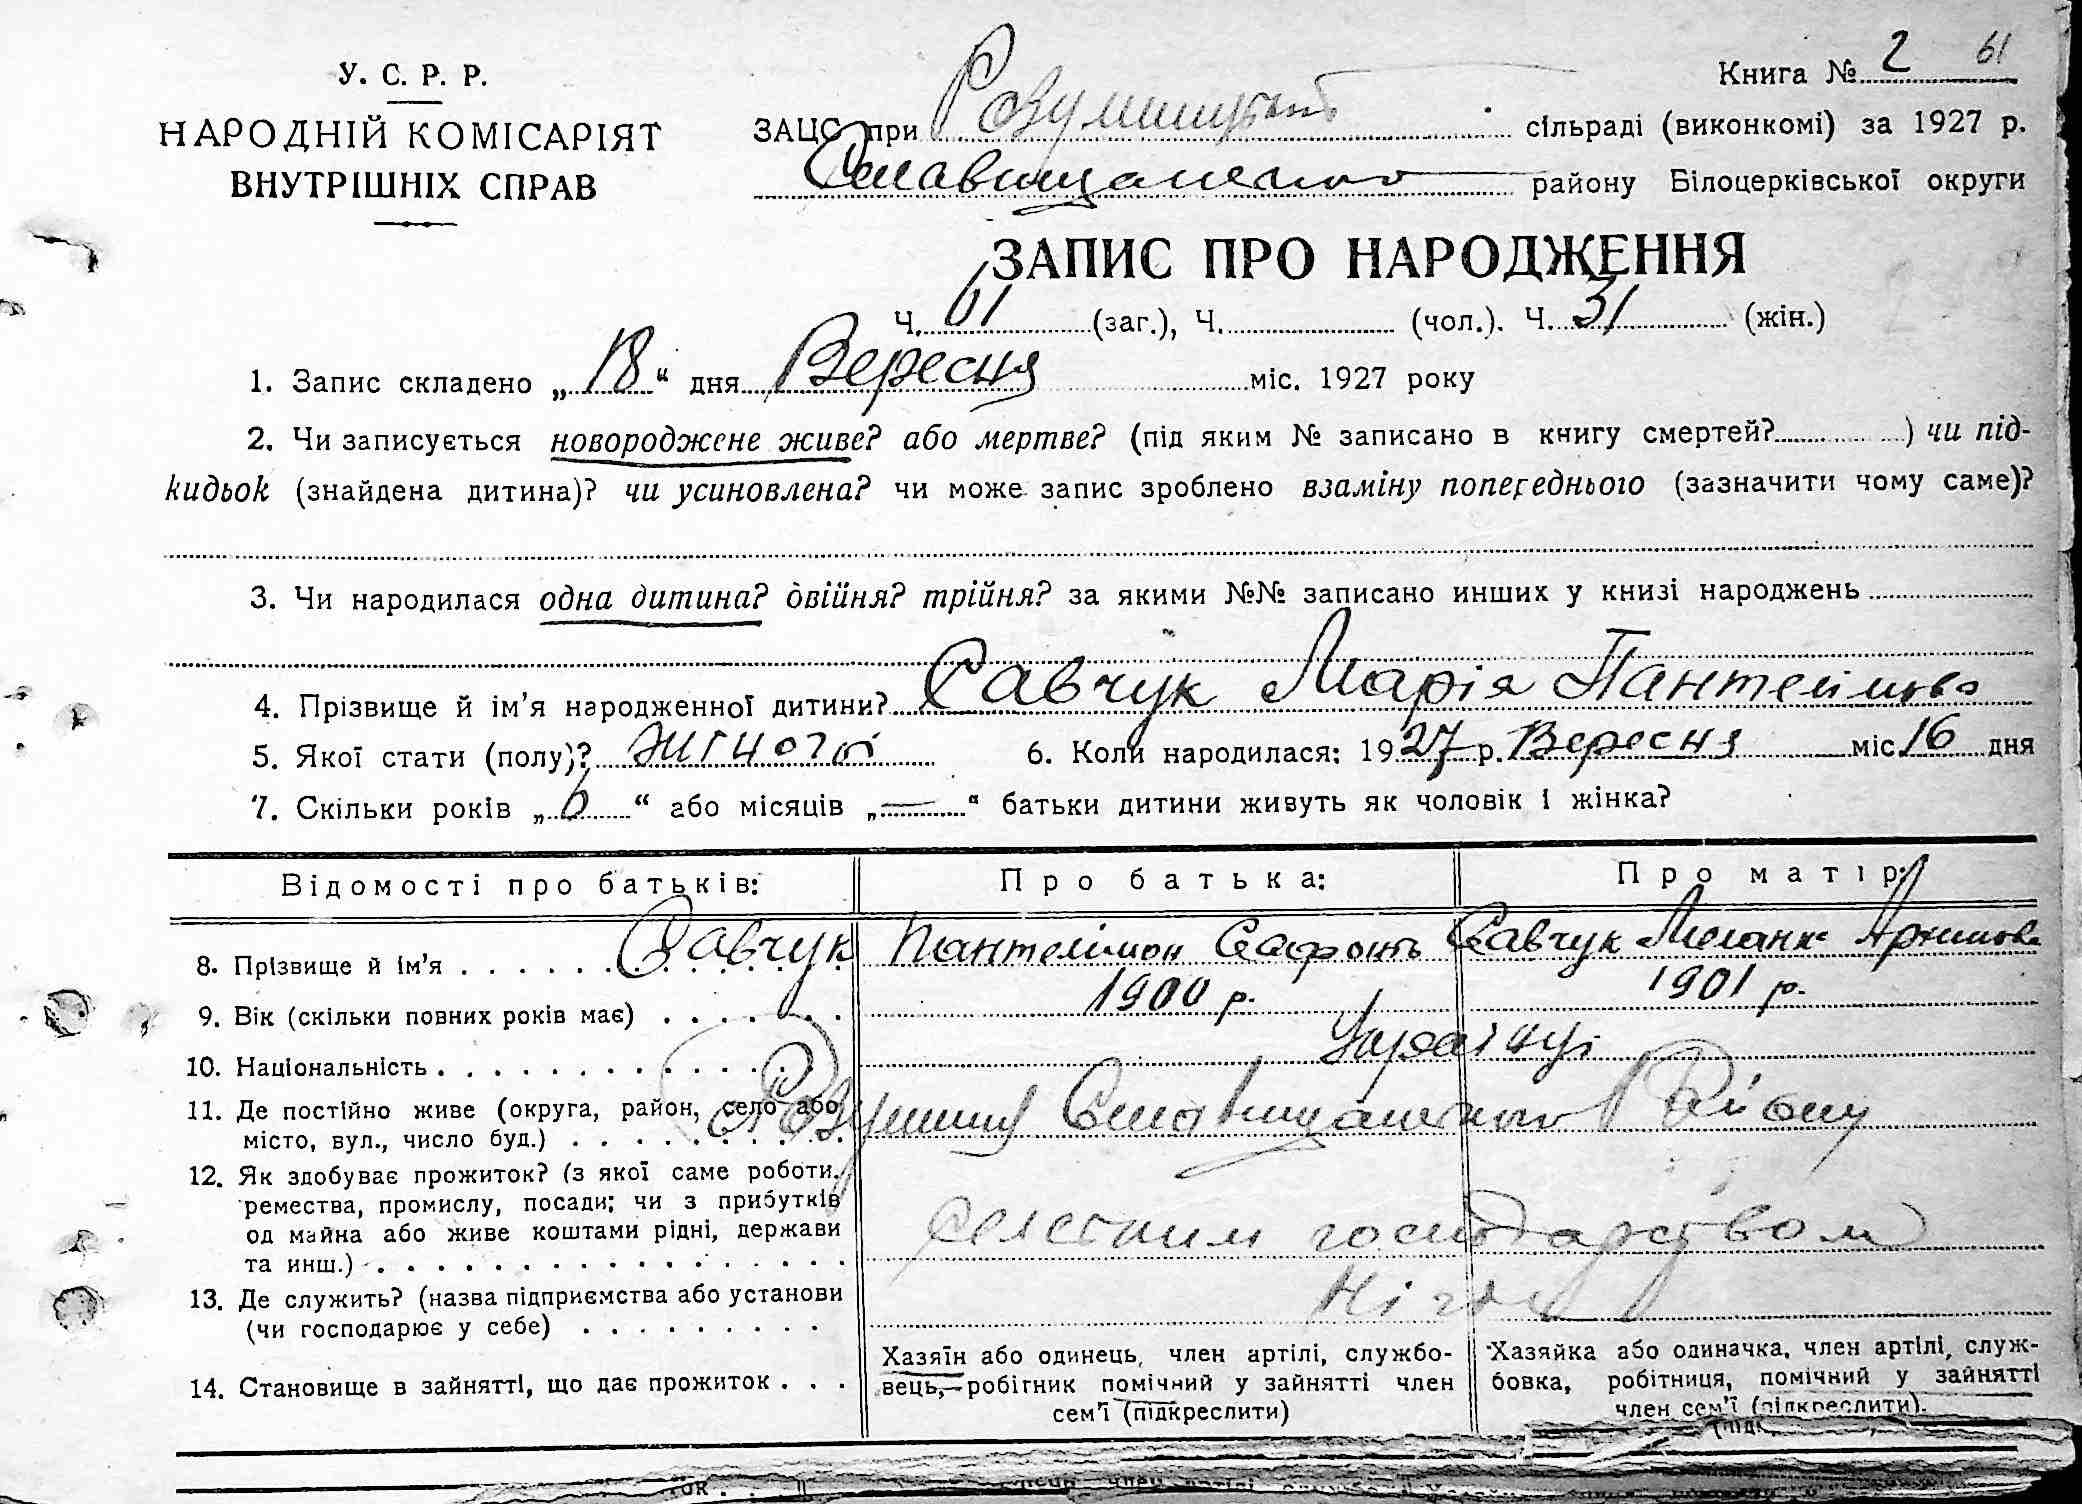 Книга № 2 61
У. С. Р. Р.
НАРОДНІЙ КОМІСАРІЯТ
ВНУТРІШНІХ СПРАВ
ЗАЦС при сільраді (виконкомі) за 1927 р.
району Білоцерківської округи
ЗАПИС ПРО НАРОДЖЕННЯ
Ч. 61 (заг.), Ч. (чол.). Ч. 31 (жін.)
1. Запис складено „ 18 “ дня Вересня міс. 1927 року
2. Чи записується новороджене живе? або мертве? (під яким № записано в книгу смертей? ) чи під-
кидьок (знайдена дитина)? чи усиновлена? чи може запис зроблено взаміну попереднього (зазначити чому саме)?
3. Чи народилася одна дитина? двійня? трійня? за якими №№ записано инших у книзі народжень
4. Прізвище й ім’я народженної дитини? Савчук Марія
5. Якої стати (полу)? Жіночої 6. Коли народилася: 1927 р. Вересня міс 16 дня
7. Скільки років „ 6 “ або місяців „ — “ батьки дитини живуть як чоловік і жінка?
Відомості про батьків: Про батька: Про матір:
8. Прізвище й ім’я . . . . . . Савчук Пантелімон Савчук
9. Вік (скільки повних років має) . . . . . . . 1900 р. 1901 р.
10. Національність . . . . . . . . . . . . . . Українці
11. Де постійно живе (округа, район, село або
місто, вул., число буд.) . . . . . . . . . . Району
12. Як здобуває прожиток? (з якої саме роботи,
ремества, промислу, посади; чи з прибутків
од майна або живе коштами рідні, держави
та инш.) . . . . . . . . . . . . . . . . . господарством
13. Де служить? (назва підприємства або установи
(чи господарює у себе) . . . . . . . . . Нігде
14. Становище в зайнятті, що дає прожиток . . .
Хазяїн або одинець, член артілі, службо-
вець, робітник помічний у зайнятті член
сем’ї (підкреслити)
Хазяйка або одиначка, член артілі, служ-
бовка, робітниця, помічний у зайнятті
член сем’ї (підкреслити).